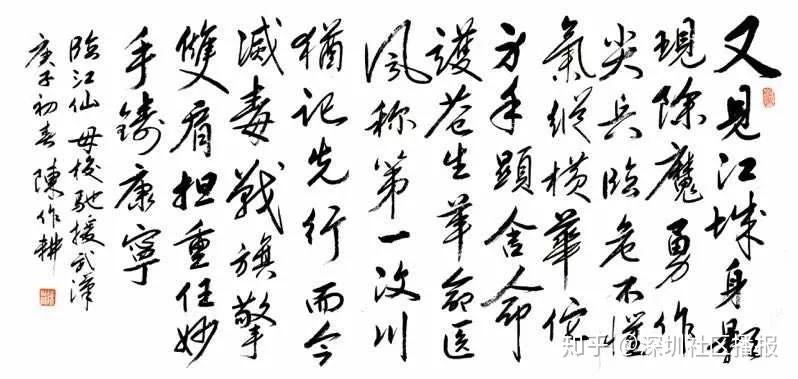 又見江城身影
現除魔勇作
尖兵臨危不懼
氣縱橫華佗
方手顯舍命
護蒼生革命医
風称第一汶川
猶記先行而今
滅毒戰旗擎
雙肩担重任妙
手鑄康寧
臨江仙 母校馳援武漢
庚子初春 陳作耕
知乎 @深圳社区播报